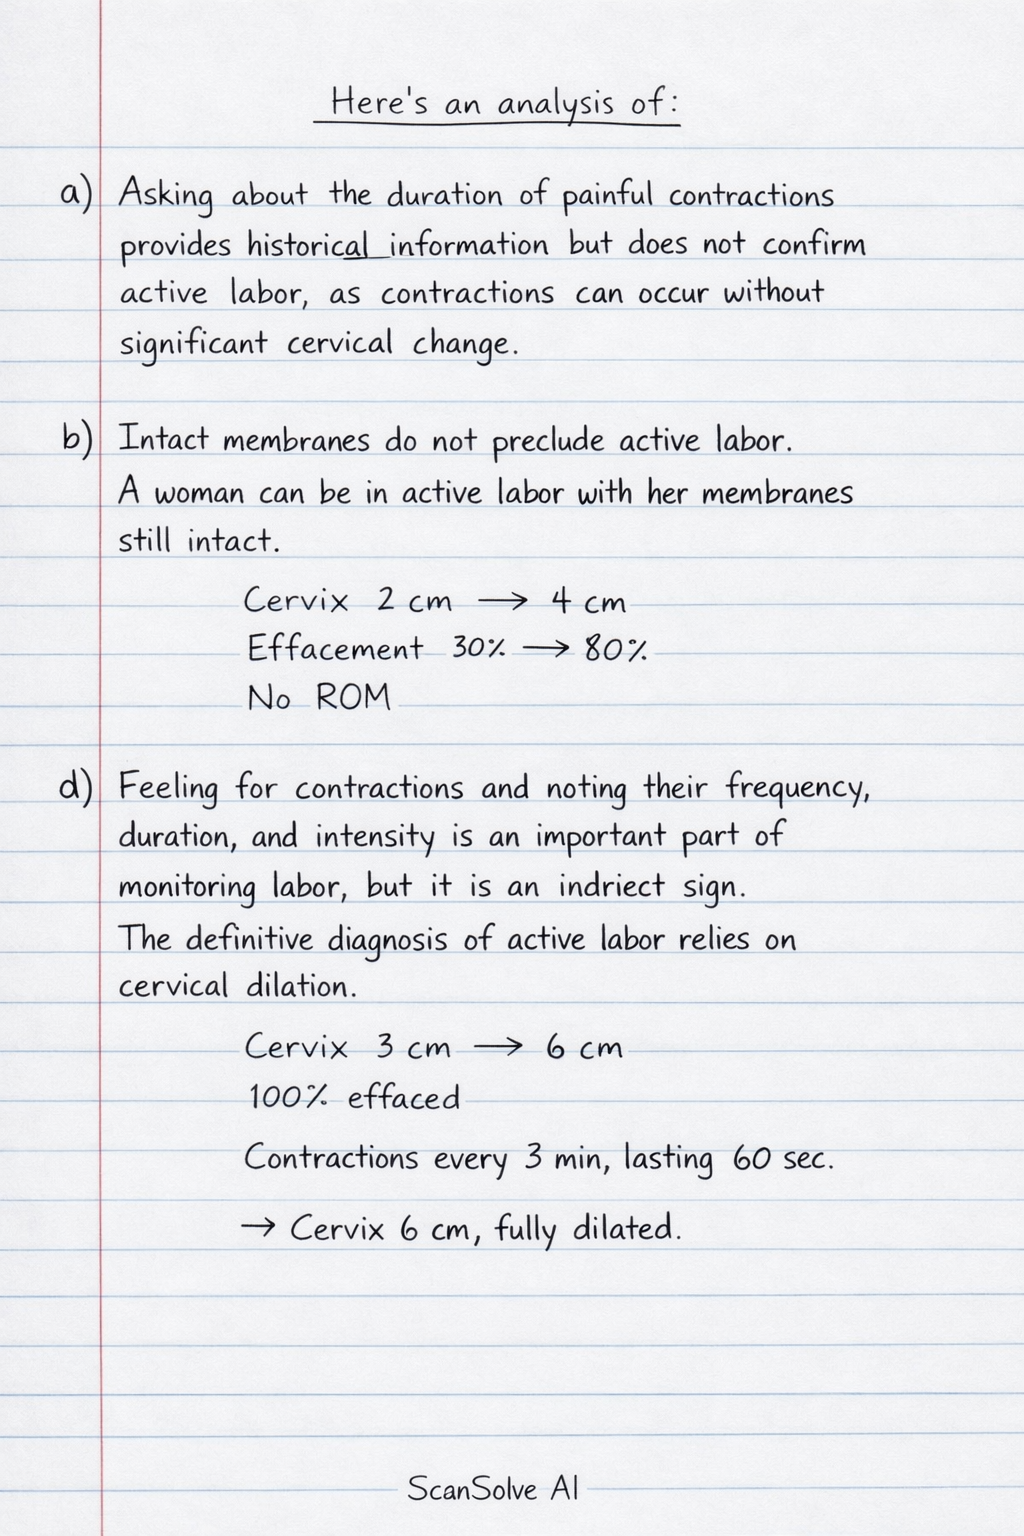 Here's an analysis of:
a) Asking about the duration of painful contractions
provides historical information but does not confirm
active labor, as contractions can occur without
significant cervical change.
b) Intact membranes do not preclude active labor.
A woman can be in active labor with her membranes
still intact.
Cervix 2 cm → 4 cm
Effacement 30% → 80%
No ROM
d) Feeling for contractions and noting their frequency,
duration, and intensity is an important part of
monitoring labor, but it is an indriect sign.
The definitive diagnosis of active labor relies on
cervical dilation.
Cervix 3 cm → 6 cm
100% effaced
Contractions every 3 min, lasting 60 sec.
→ Cervix 6 cm, fully dilated.
ScanSolve AI